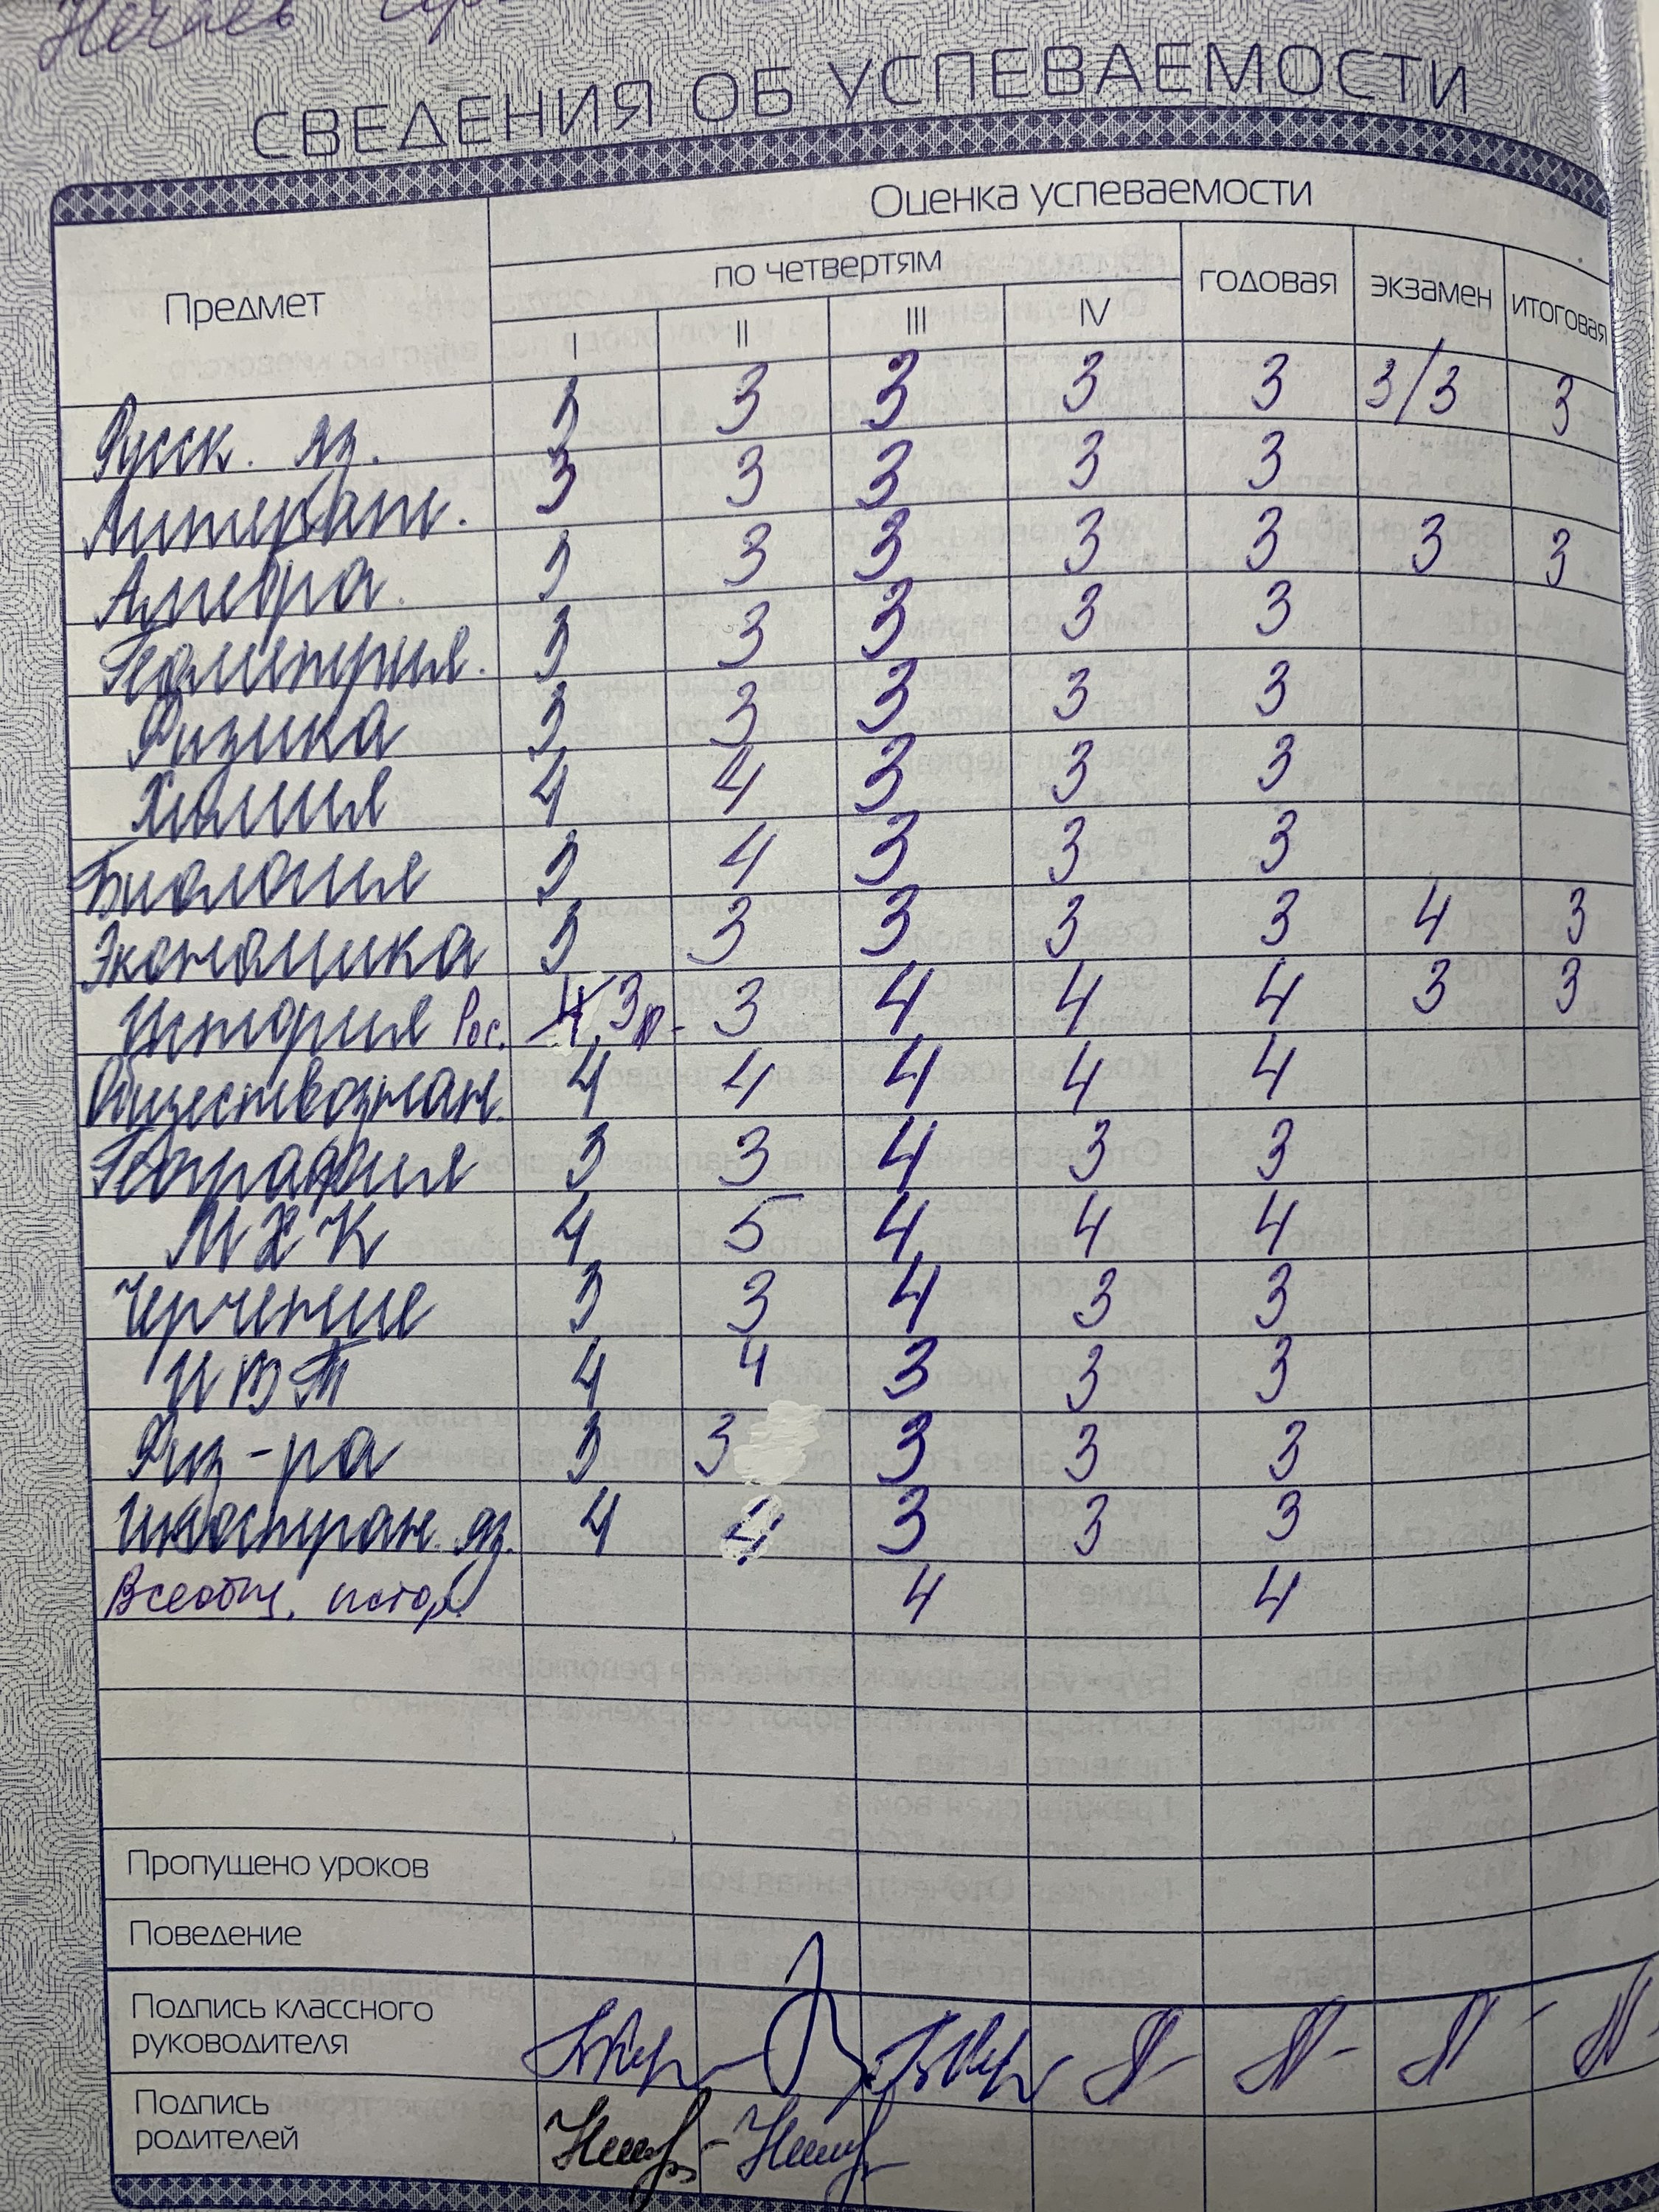 Нечаев
СВЕДЕНИЯ ОБ УСПЕВАЕМОСТИ
Предмет Оценка успеваемости
по четвертям годовая экзамен итоговая
I II III IV
Русск. яз. 3 3 3 3 3 3/3 3
Литерат. 3 3 3 3 3
Алгебра. 3 3 3 3 3 3 3
Геометрия. 3 3 3 3 3
Физика 3 3 3 3 3
Химия 4 4 3 3 3
Биология 3 4 3 3 3
Экономика 3 3 3 3 3 4 3
История Рос. 4 3 3 4 4 4 3 3
Обществознан. 4 4 4 4 4
География 3 3 4 3 3
МХК 4 5 4 4 4
Черчение 3 3 4 3 3
ИВТ 4 4 3 3 3
Физ-ра 3 3 3 3 3
Иностран. яз. 4 4 3 3 3
Всеобщ. истор. 4 4
Пропущено уроков
Поведение
Подпись классного
руководителя
Подпись
родителей